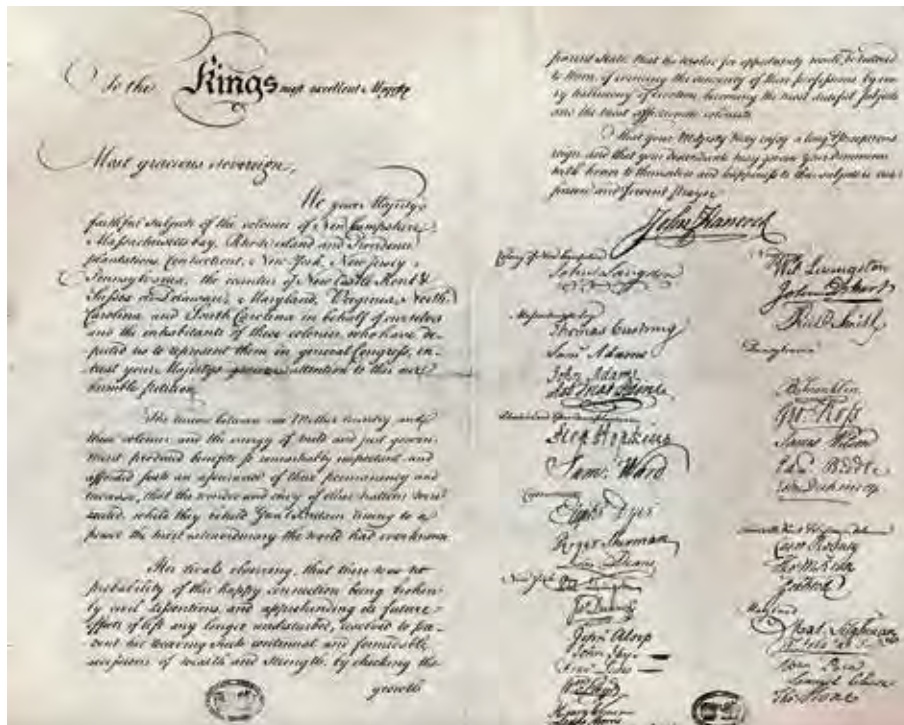 To the Kings most excellent Majesty
Most gracious sovereign,
We your Majestys
faithful subjects of the colonies of New hampshire,
Massachusetts bay, Rhode island and Providence
plantations, Connecticut, New-York, New Jersey,
Pennsylvania, the counties of New Castle Kent &
Sussex on Delaware, Maryland, Virginia, North
Carolina and South Carolina in behalf of ourselves
and the inhabitants of these colonies, who have de-
puted us to represent them in general Congress, en-
treat your Majestys gracious attention to this our
humble petition.
The union between our Mother country and
these colonies, and the energy of mild and just govern-
ment produced benefits so remarkably important and
afforded such an assurance of their permanency and
increase, that the wonder and envy of other nations were
excited, while they beheld Great Britain rising to a
power the most extraordinary the world had ever known.
Her rivals observing, that there was no
probability of this happy connection being broken
by civil dissentions, and apprehending its future
effects if left any longer undisturbed, resolved to pre-
vent her receiving such continual and formidable
accessions of wealth and strength, by checking the
growth
that the wished for opportunity would be restored
to them, of evincing the sincerity of their professions by eve-
ry testimony of devotion becoming the most dutiful subjects
and the most affectionate colonists.
That your Majesty may enjoy a long & prosperous
reign, and that your descendants may govern your dominions
with honor to themselves and happiness to their subjects is our
sincere and fervent prayer.
John Hancock
Colony of New hampshire
John Langdon
Massachusetts bay
Thomas Cushing
Saml Adams
John Adams
Rob Treat Paine
Step Hopkins
Sam: Ward
Connecticut
Elipht Dyer
Roger Sherman
Silas Deane
New York
Jas Duane
John Alsop
John Jay
Wm Floyd
Lewis Morris
Wil Livingston
John De hart
Richd Smith
Pennsylvania
B Franklin
Geo: Ross
James Wilson
Edwd Biddle
John Dickinson
Caesar Rodney
Tho M:Kean
Geo Read
Maryland
Mat Tilghman
Wm Paca
Samuel Chase
Tho Stone